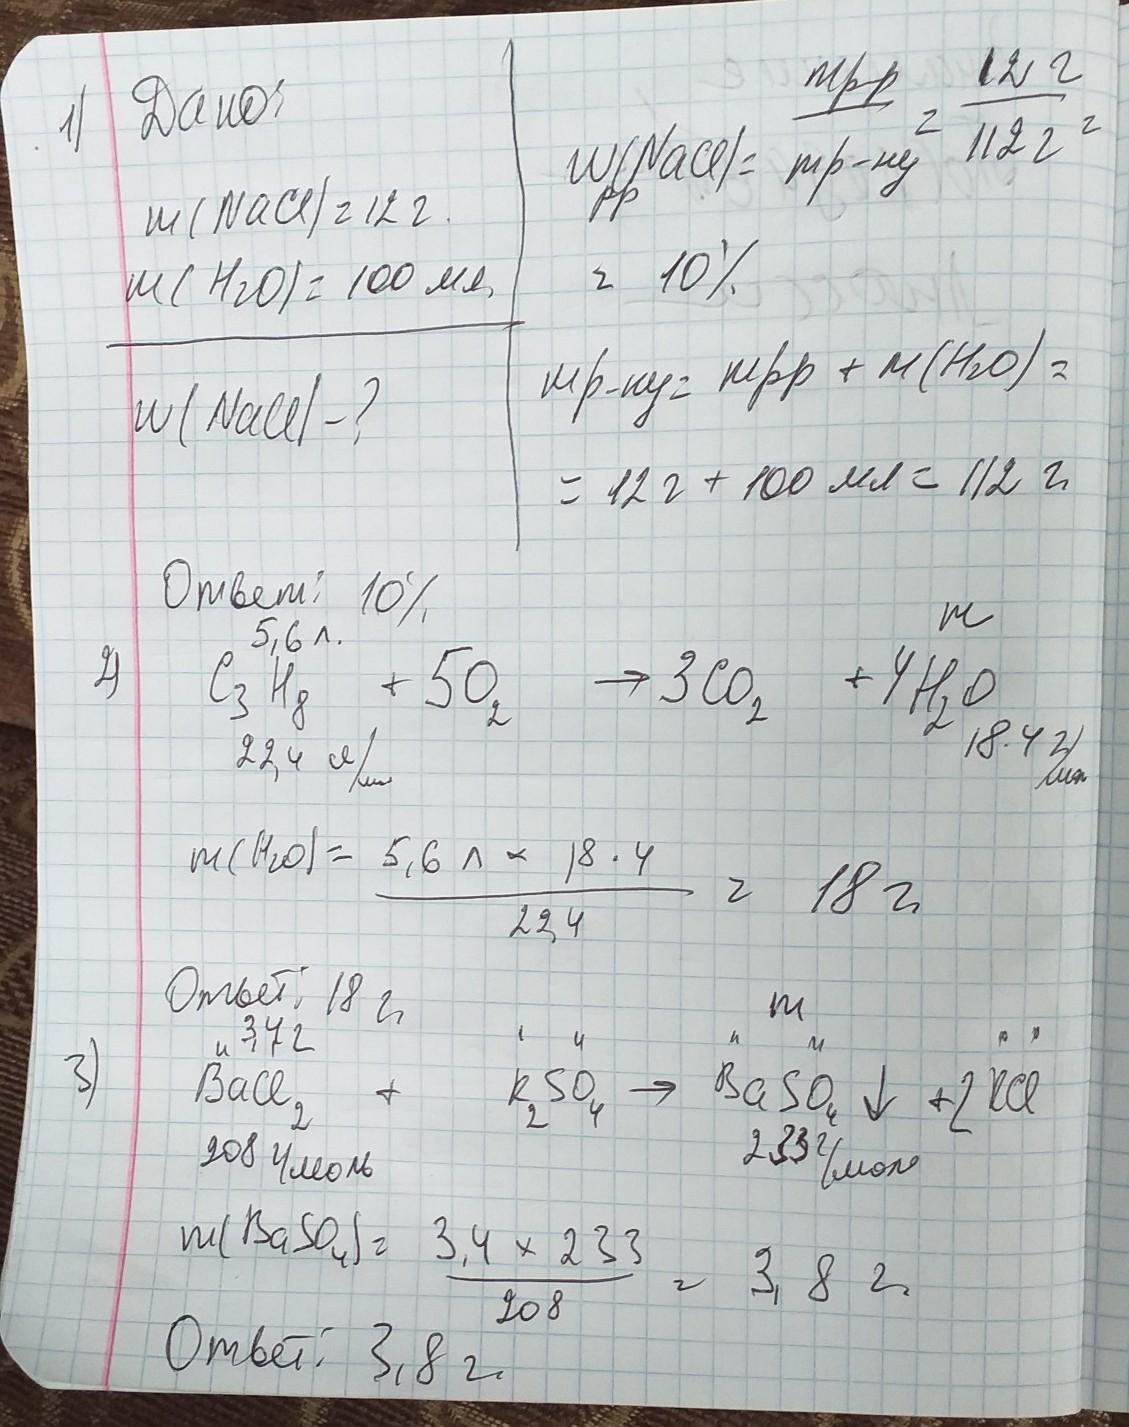 1) Дано:
m(NaCl) = 12 г.
m(H₂O) = 100 мл.
w(NaCl) - ?
w(NaCl) = mрв / mр-ну = 12 г / 112 г =
рв
= 10%
mр-ну = mрв + m(H₂O) =
= 12 г + 100 мл = 112 г.
Ответ: 10%
5,6 л. m
2) C₃H₈ + 5O₂ → 3CO₂ + 4H₂O
22,4 л/м 18·4 г/моль
m(H₂O) = 5,6 л × 18·4 / 22,4 = 18 г.
Ответ: 18 г.
3,4 г m
3) BaCl₂ + K₂SO₄ → BaSO₄ ↓ + 2KCl
208 г/моль 233 г/моль
m(BaSO₄) = 3,4 × 233 / 208 = 3,8 г.
Ответ: 3,8 г.